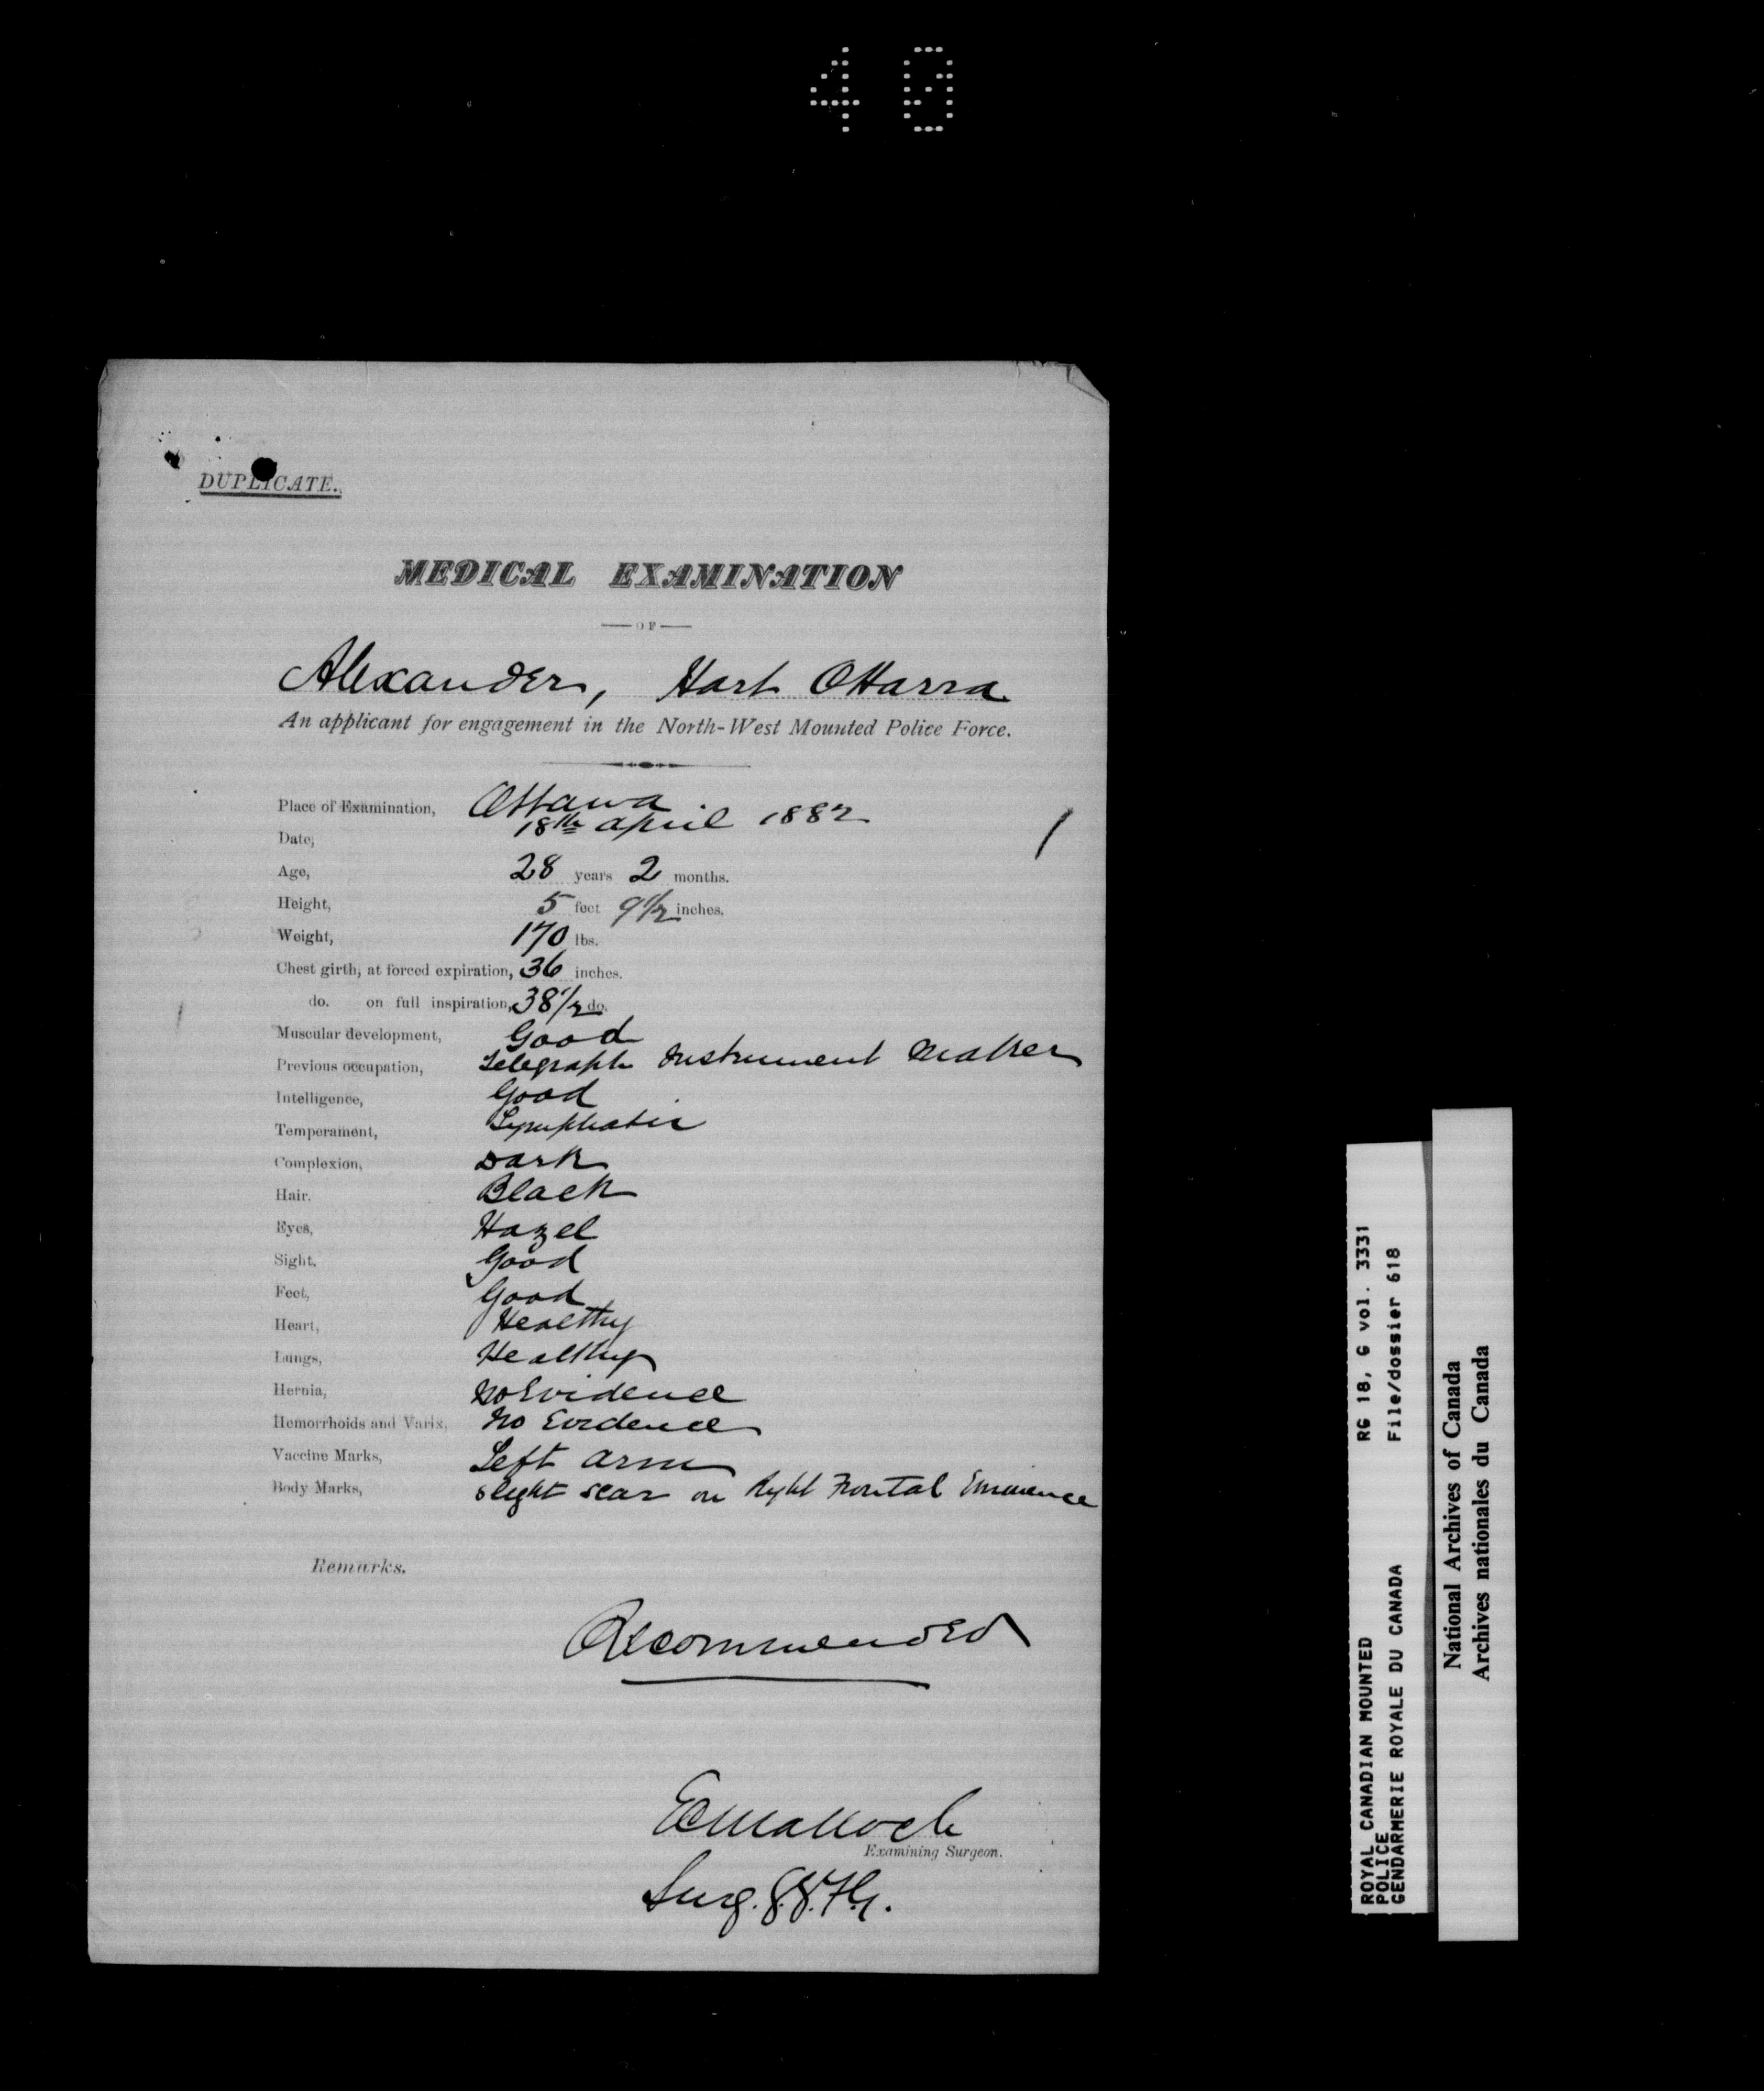 40
DUPLICATE.
MEDICAL EXAMINATION
— OF —
Alexander, Hart OHarra
An applicant for engagement in the North-West Mounted Police Force.
Place of Examination, Ottawa
Date, 18th april 1882
Age, 28 years 2 months.
Height, 5 feet 9 1/2 inches.
Weight, 170 lbs.
Chest girth, at forced expiration, 36 inches.
do. on full inspiration, 38 1/2 do.
Muscular development, Good
Previous occupation, Telegraph Instrument Maker
Intelligence, Good
Temperament, Lymphatic
Complexion, Dark
Hair. Black
Eyes, Hazel
Sight. Good
Feet, Good
Heart, Healthy
Lungs, Healthy
Hernia, No Evidence
Hemorrhoids and Varix, No Evidence
Vaccine Marks, Left arm
Body Marks, slight scar on Right Frontal Eminence
Remarks.
Recommended
E C Malloch
Examining Surgeon.
Surg.
ROYAL CANADIAN MOUNTED POLICE RG 18, G vol. 3331
GENDARMERIE ROYALE DU CANADA File/dossier 618
National Archives of Canada
Archives nationales du Canada